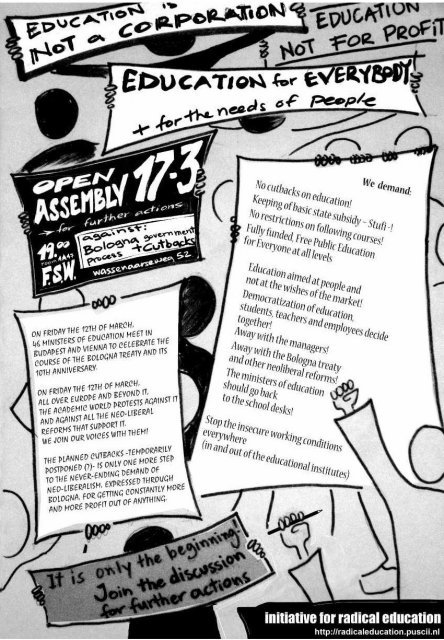 EDUCATION is
NOT a CORPORATION
EDUCATION
NOT FOR PROFIT
EDUCATION for EVERYBODY!
+ for the needs of people
OPEN
ASSEMBLY 17-3
for further actions
19.00
F.S.W.
against:
Bologna government
Process + Cutbacks
wassenaarseweg 52
We demand:
No cutbacks on education!
Keeping of basic state subsidy - Stufi -!
No restrictions on following courses!
Fully funded, Free Public Education
for Everyone at all levels
Education aimed at people and
not at the wishes of the market!
Democratization of education,
students, teachers and employees decide
together!
Away with the managers!
Away with the Bologna treaty
and other neoliberal reforms!
The ministers of education
should go back
to the school desks!
Stop the insecure working conditions
everywhere
(in and out of the educational institutes)
ON FRIDAY THE 12TH OF MARCH,
46 MINISTERS OF EDUCATION MEET IN
BUDAPEST AND VIENNA TO CELEBRATE THE
COURSE OF THE BOLOGNA TREATY AND ITS
10TH ANNIVERSARY.
ON FRIDAY THE 12TH OF MARCH,
ALL OVER EUROPE AND BEYOND IT,
THE ACADEMIC WORLD PROTESTS AGAINST IT
AND AGAINST ALL THE NEO-LIBERAL
REFORMS THAT SUPPORT IT.
WE JOIN OUR VOICES WITH THEM!
THE PLANNED CUTBACKS -TEMPORARILY
POSTPONED (?)- IS ONLY ONE MORE STEP
TO THE NEVER-ENDING DEMAND OF
NEO-LIBERALISM, EXPRESSED THROUGH
BOLOGNA, FOR GETTING CONSTANTLY MORE
AND MORE PROFIT OUT OF ANYTHING.
It is only the beginning!
Join the discussion
for further actions
initiative for radical education
http://radicaleducation.puscii.nl